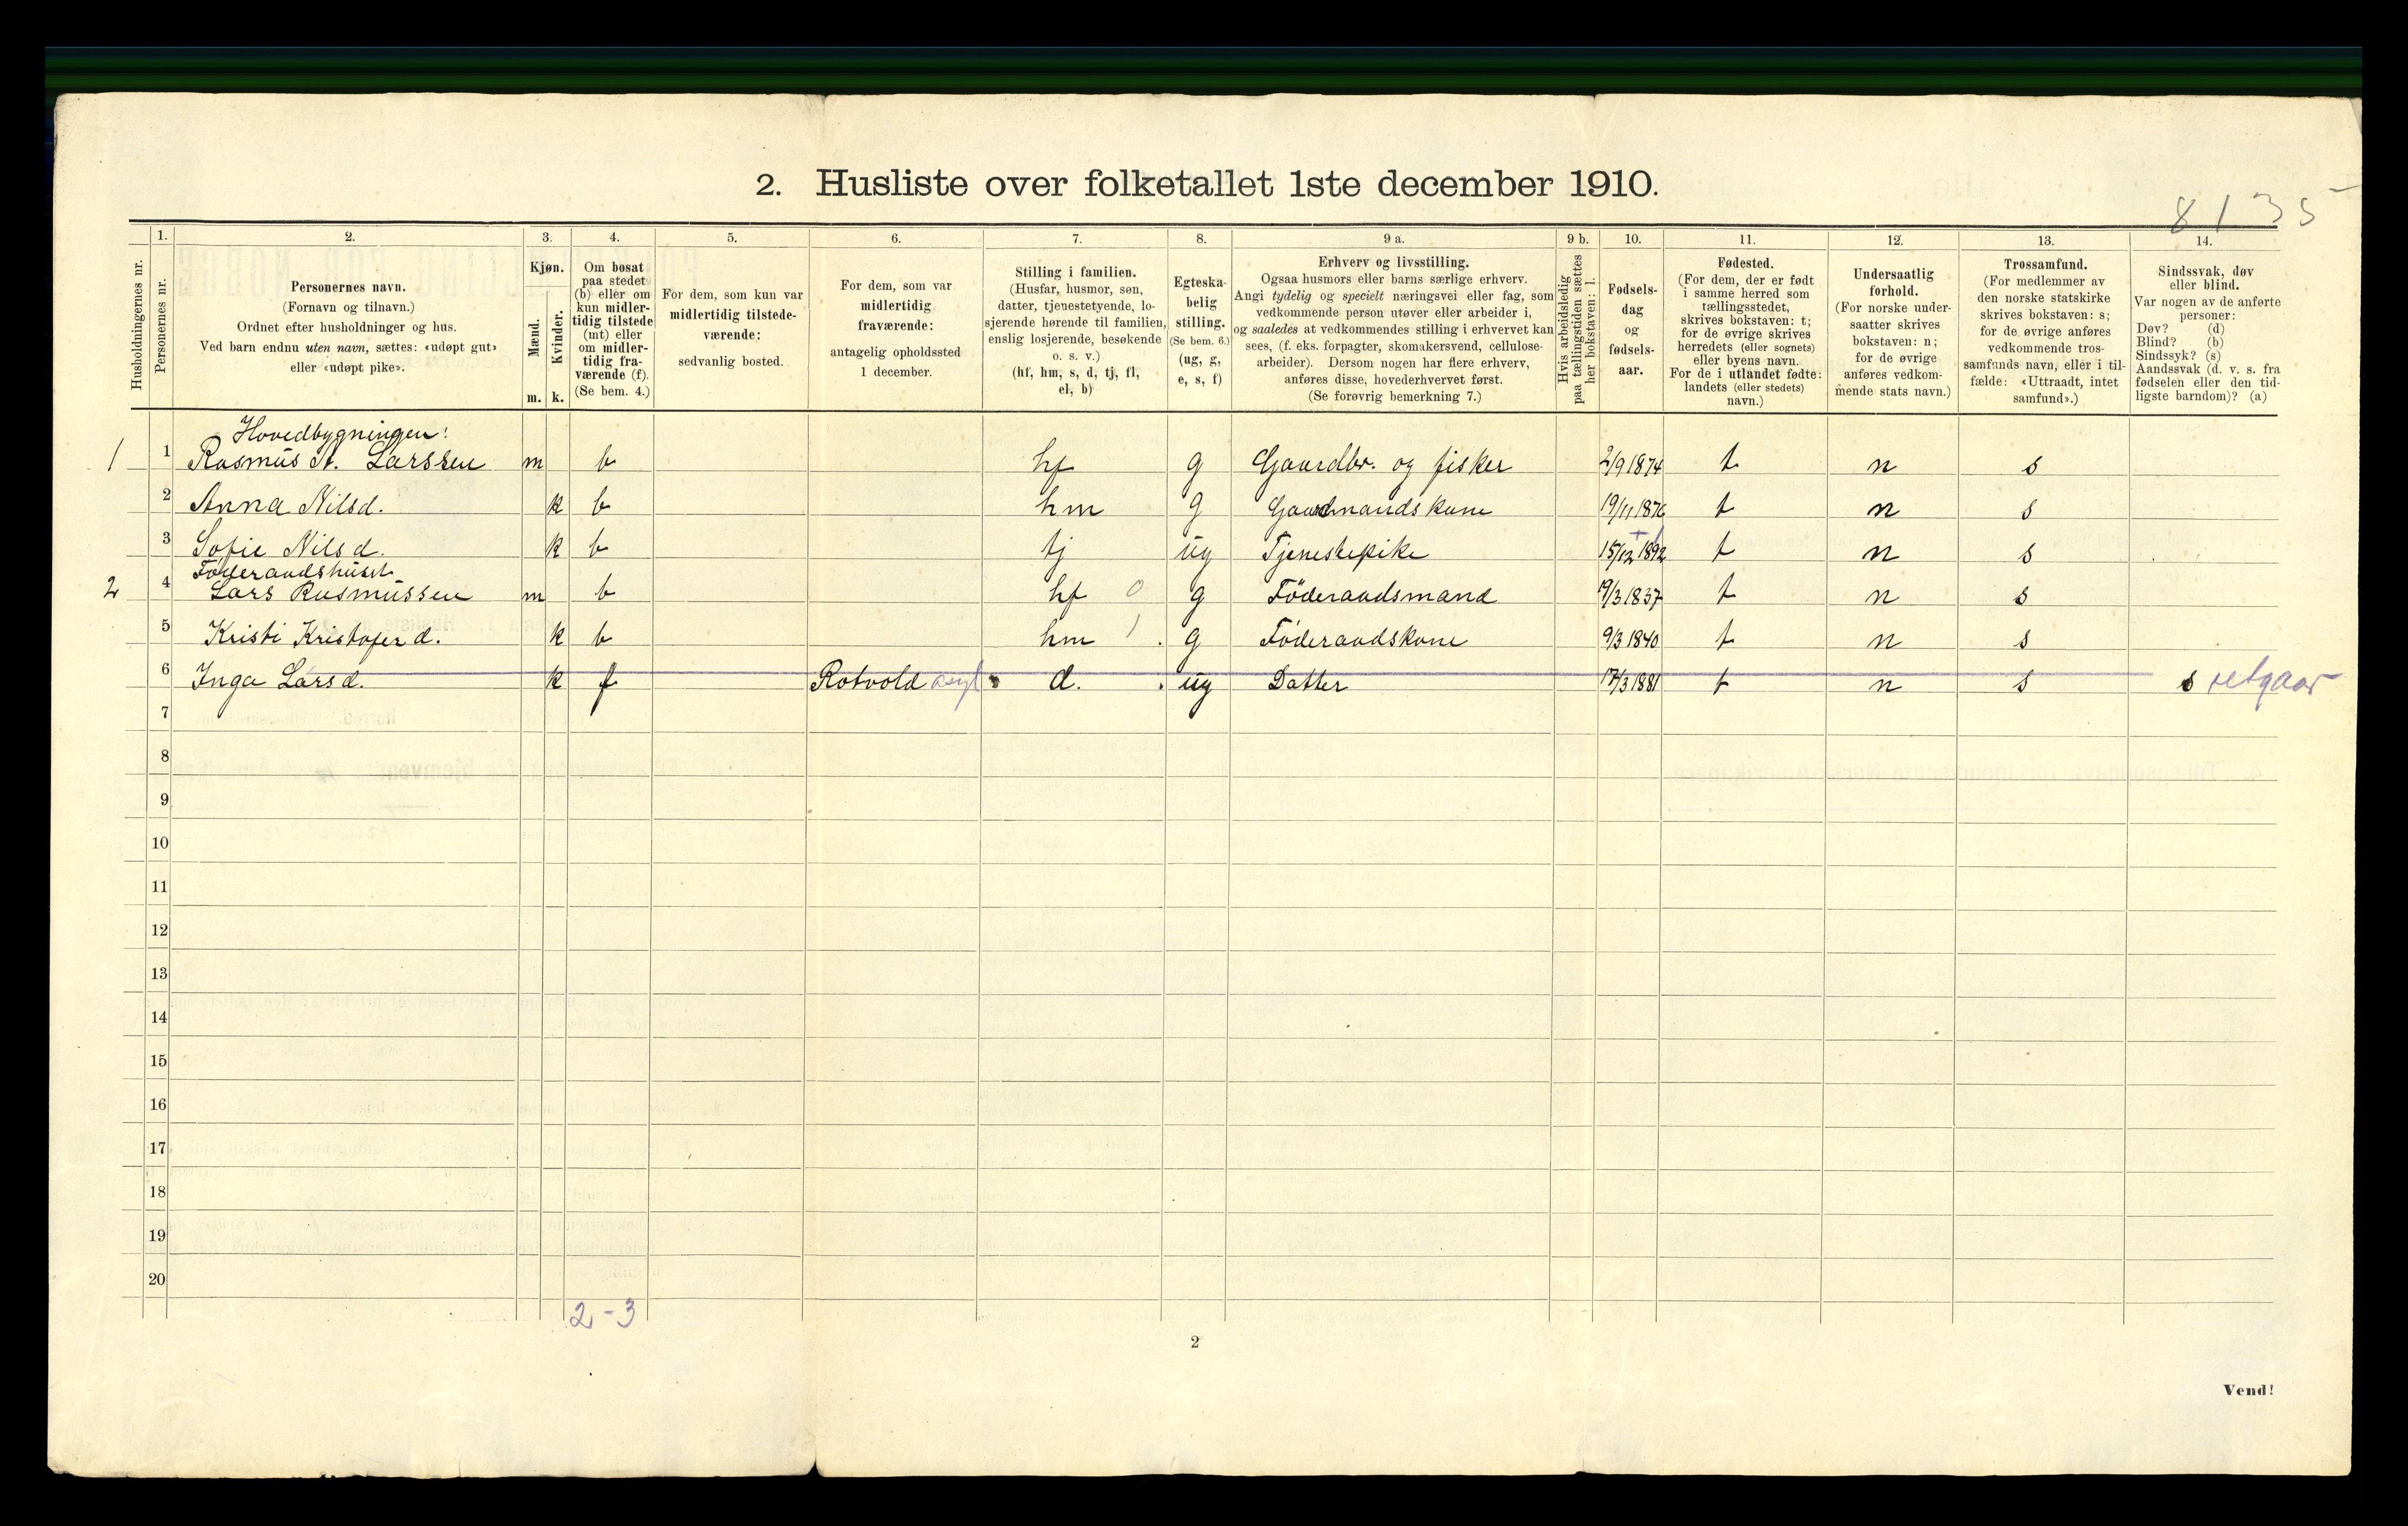 2. Husliste over folketallet 1ste december 1910.
8135
1. 2. 3. 4. 5. 6. 7. 8. 9 a. 9 b. 10. 11. 12. 13. 14.
Husholdningernes nr.
Personernes nr.
Personernes navn.
(Fornavn og tilnavn.)
Ordnet efter husholdninger og hus.
Ved barn endnu uten navn, sættes: «udøpt gut»
eller «udøpt pike».
Kjøn.
Mænd.
Kvinder.
m. k.
Om bosat
paa stedet
(b) eller om
kun midler-
tidig tilstede
(mt) eller
om midler-
tidig fra-
værende (f).
(Se bem. 4.)
For dem, som kun var
midlertidig tilstede-
værende:
sedvanlig bosted.
For dem, som var
midlertidig
fraværende:
antagelig opholdssted
1 december.
Stilling i familien.
(Husfar, husmor, søn,
datter, tjenestetyende, lo-
sjerende hørende til familien,
enslig losjerende, besøkende
o. s. v.)
(hf, hm, s, d, tj, fl,
el, b)
Egteska-
belig
stilling.
(Se bem. 6.)
(ug, g,
e, s, f)
Erhverv og livsstilling.
Ogsaa husmors eller barns særlige erhverv.
Angi tydelig og specielt næringsvei eller fag, som
vedkommende person utøver eller arbeider i,
og saaledes at vedkommendes stilling i erhvervet kan
sees, (f. eks. forpagter, skomakersvend, cellulose-
arbeider). Dersom nogen har flere erhverv,
anføres disse, hovederhvervet først.
(Se forøvrig bemerkning 7.)
Hvis arbeidsledig
paa tællingstiden sættes
her bokstaven: l.
Fødsels-
dag
og
fødsels-
aar.
Fødested.
(For dem, der er født
i samme herred som
tællingsstedet,
skrives bokstaven: t;
for de øvrige skrives
herredets (eller sognets)
eller byens navn.
For de i utlandet fødte:
landets (eller stedets)
navn.)
Undersaatlig
forhold.
(For norske under-
saatter skrives
bokstaven: n;
for de øvrige
anføres vedkom-
mende stats navn.)
Trossamfund.
(For medlemmer av
den norske statskirke
skrives bokstaven: s;
for de øvrige anføres
vedkommende tros-
samfunds navn, eller i til-
fælde: «Uttraadt, intet
samfund».)
Sindssvak, døv
eller blind.
Var nogen av de anførte
personer:
Døv? (d)
Blind? (b)
Sindssyk? (s)
Aandssvak (d. v. s. fra
fødselen eller den tid-
ligste barndom)? (a)
Hovedbygningen:
1 1 Rasmus A. Larssen m b hf g Gaardbr. og fisker 2/9 1874 t n s
2 Anna Nilsd. k b hm g Gaardmandskone 19/11 1876 t n s
3 Sofie Nilsd. k b tj ug Tjenestepike 15/12 1892 t n s
Föderaadshuset
2 4 Lars Rasmussen m b hf 0 g Föderaadsmand 19/3 1837 t n s
5 Kristi Kristofer d. k b hm 1 g Föderaadskone 9/3 1840 t n s
6 Inga Larsd. k f Rotvold asyl d. ug Datter 17/3 1881 t n s s utgaar
7
8
9
10
11
12
13
14
15
16
17
18
19
20
2-3
2
Vend!